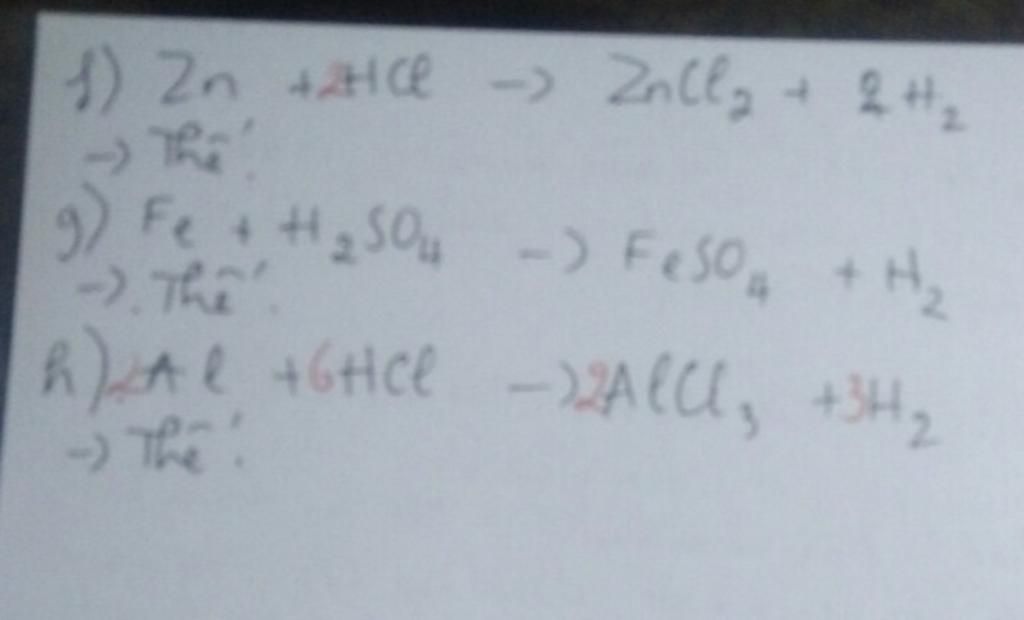 f) Zn + 2HCl -> ZnCl₂ + 2 H₂
-> Thế.
g) Fe + H₂SO₄ -> FeSO₄ + H₂
->. Thế.
h) 2Al + 6HCl -> 2AlCl₃ + 3H₂
-> Thế.